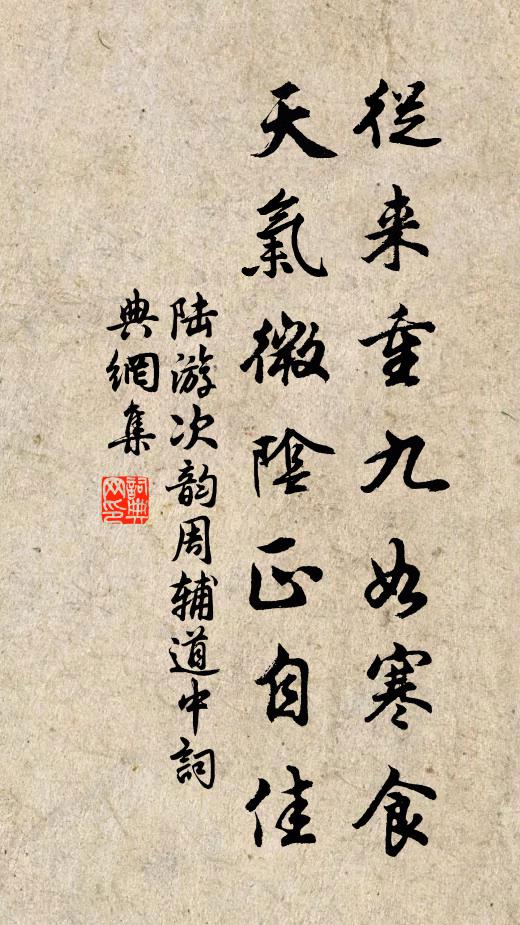 從来重九如寒食
天氣微陰正自佳
陆游次韵周辅道中詞
典網集
詞典
网印